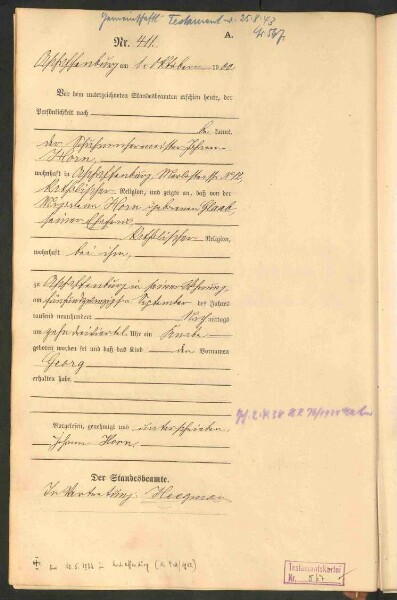 Gemeinschaftl. Testament v. 25.8.43
A.
Nr. 411.
Aschaffenburg am 1. Oktober 1900
Vor dem unterzeichneten Standesbeamten erschien heute, der
Persönlichkeit nach
be kannt,
der Schuhmachermeister Johann
Horn,
wohnhaft in Aschaffenburg
katholischer Religion, und zeigte an, daß von der
Horn, geborenen Glaab,
seiner Ehefrau,
katholischer Religion,
wohnhaft bei ihm,
zu Aschaffenburg in seiner Wohnung
am fünfundzwanzigsten September des Jahres
tausend neunhundert Nachmittags
um Uhr ein Knabe
geboren worden sei und daß das Kind den Vornamen
Georg
erhalten habe.
Vorgelesen, genehmigt und unterschrieben
Johann Horn.
Der Standesbeamte.
In Vertretung:
Testamentskartei
Nr. 567